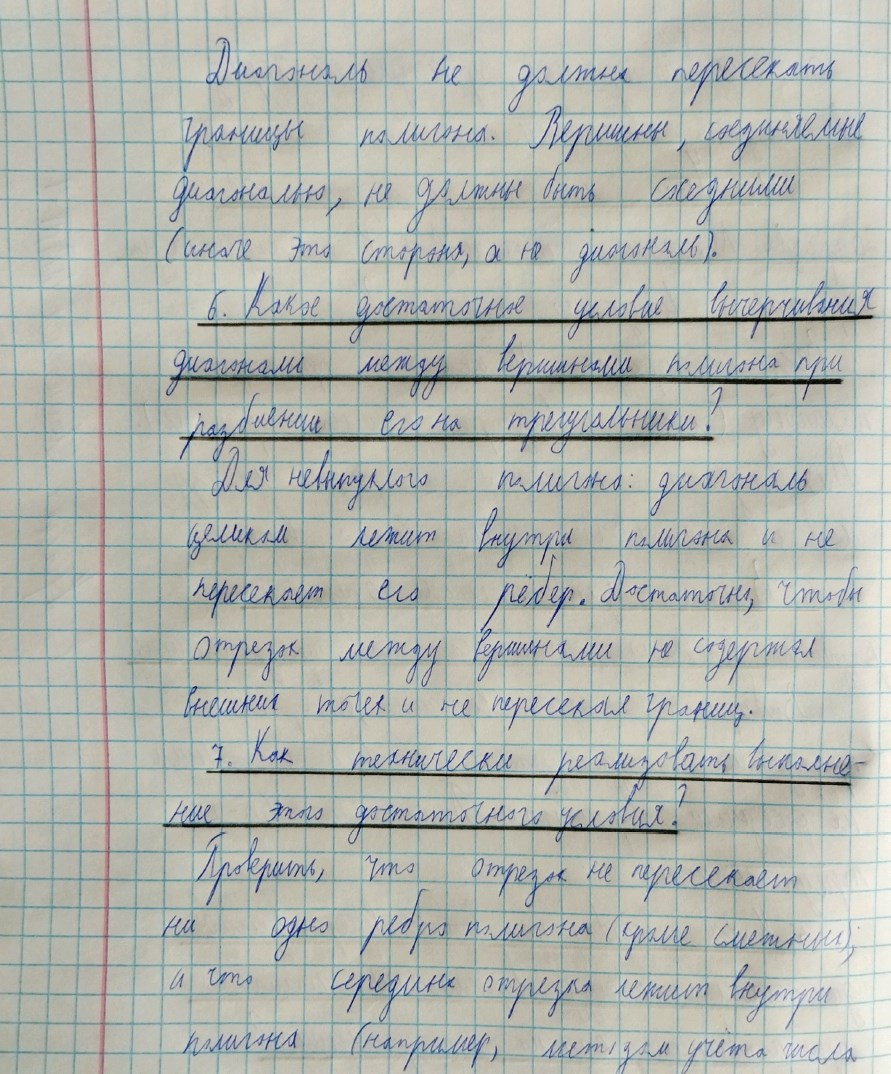 Диагональ не должна пересекать
границы полигона. Вершины, соединяемые
диагональю, не должны быть соседними
(иначе это сторона, а не диагональ).
6. Какое достаточное условие вычерчивания
диагонали между вершинами полигона при
разбиении его на треугольники?
Для невыпуклого полигона: диагональ
целиком лежит внутри полигона и не
пересекает его рёбер. Достаточно, чтобы
отрезок между вершинами не содержал
внешних точек и не пересекал границ.
7. Как технически реализовать выполне-
ние этого достаточного условия?
Проверить, что отрезок не пересекает
ни одно ребро полигона (кроме смежных);
и что середина отрезка лежит внутри
полигона (например, методом учёта числа